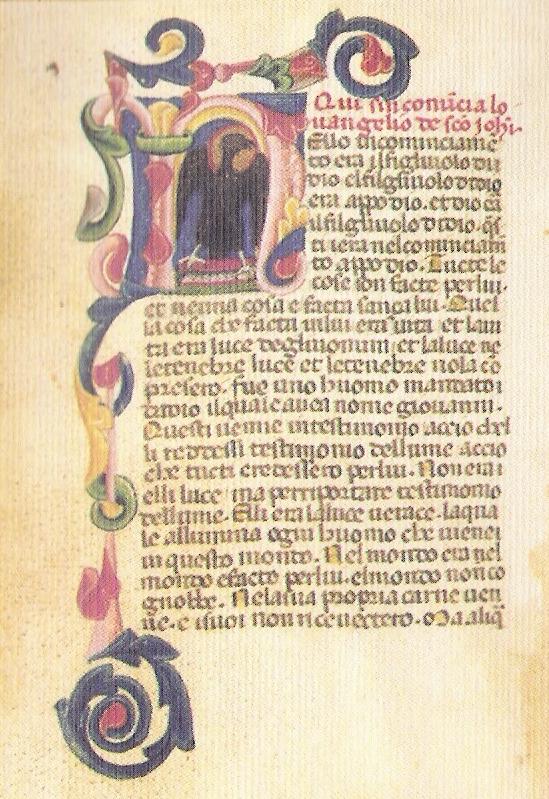 Qui sin comīcia lo
uangelio de scō Johī.
Ello īncominciamē
to era il figliuolo di
dio el filgliuolo didio
era appo dio. et dio era
il filgliuolo didio. q̄s
ti iera nel cominciam
to appo dio. Tucte le
cose son facte per lui.
et neuna cosa e facta sança lui. Quel
la cosa che facta in lui era uita et la ui
ta era luce degli uomini et la luce ne
le tenebre luce et le tenebre no la co
presero. fue uno huomo mandato i
didio il quale auea nome giouanni.
Questi uenne in testimonio accio chel
li rendessi testimonio dellume accio
che tucti credessero per lui. Non era i
elli luce ma per riportare testimonio
dellume. Elli era la luce uerace. la qua
le allumina ogni huomo che uienei
in questo mondo. Nel mondo era nel
mondo efacto per lui. el mondo non co
gnobbe. Nela sua propria carne uen
ne. e i suoi non riceuectero. Ma aliq̄